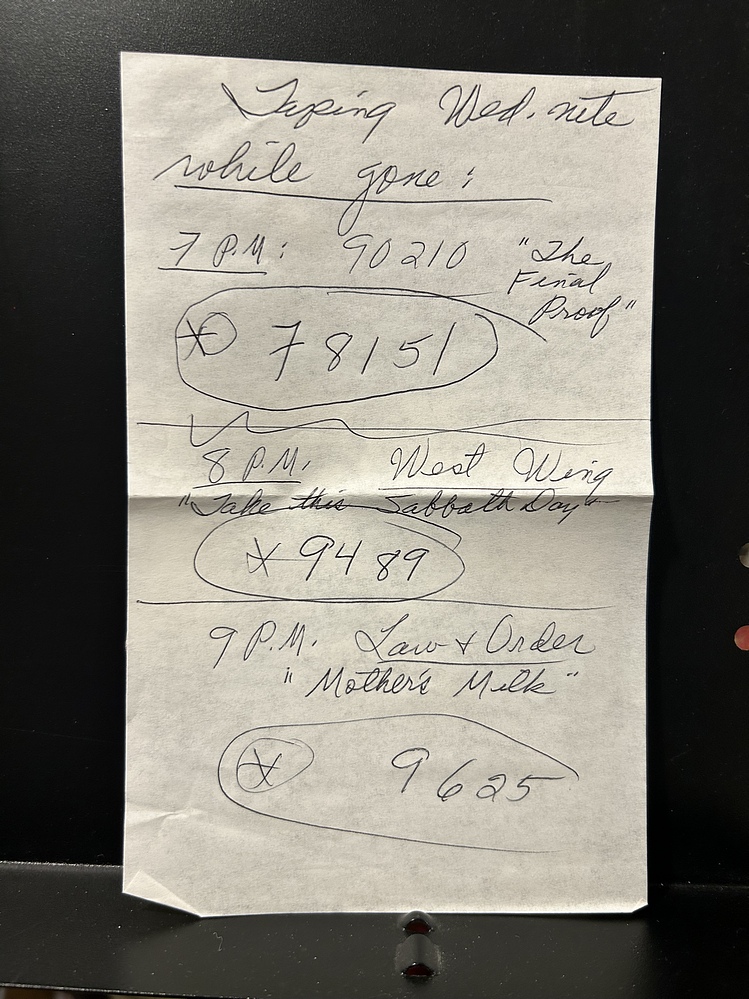 Taping Wed. nite
while gone:
7 P.M: 90210 "The
Final
Proof"
* 78151
8 P.M. West Wing
"Take this Sabbath Day"
* 9489
9 P.M. Law & Order
"Mother's Milk"
* 9625